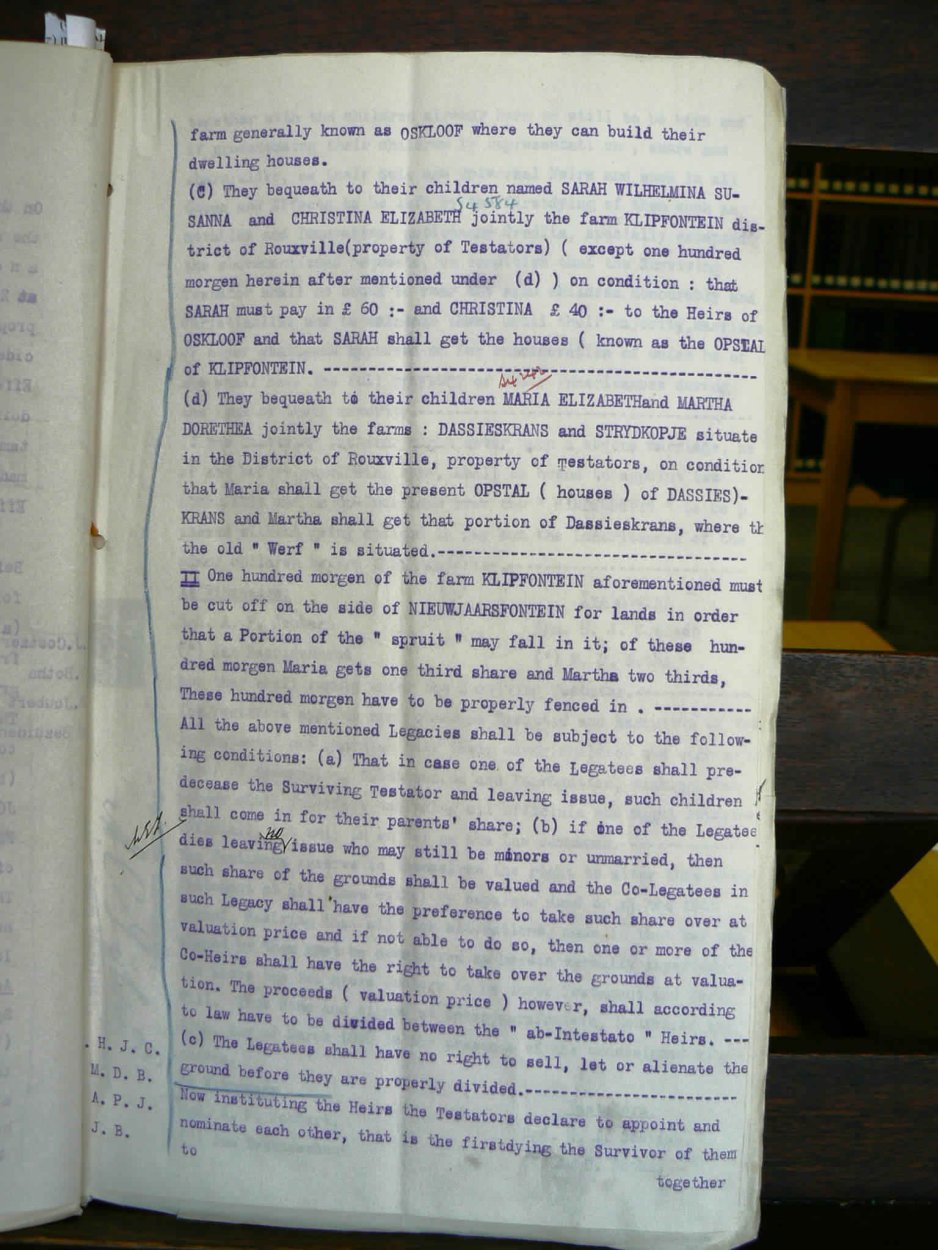 farm generally known as OSKLOOF where they can build their
dwelling houses.
(c) They bequeath to their children named SARAH WILHELMINA SU-
S4584
SANNA and CHRISTINA ELIZABETH jointly the farm KLIPFONTEIN dis-
trict of Rouxville(property of Testators) ( except one hundred
morgen herein after mentioned under (d) ) on condition : that
SARAH must pay in £ 60 :- and CHRISTINA £ 40 :- to the Heirs of
OSKLOOF and that SARAH shall get the houses ( known as the OPSTAL
of KLIPFONTEIN. ------------------------------------------------
(d) They bequeath to their children MARIA ELIZABETHand MARTHA
DORETHEA jointly the farms : DASSIESKRANS and STRYDKOPJE situate
in the District of Rouxville, property of Testators, on condition
that Maria shall get the present OPSTAL ( houses ) of DASSIES)-
KRANS and Martha shall get that portion of Dassieskrans, where th
the old " Werf " is situated.----------------------------------
II One hundred morgen of the farm KLIPFONTEIN aforementioned must
be cut off on the side of NIEUWJAARSFONTEIN for lands in order
that a Portion of the " spruit " may fall in it; of these hun-
dred morgen Maria gets one third share and Martha two thirds,
These hundred morgen have to be properly fenced in . -----------
All the above mentioned Legacies shall be subject to the follow-
ing conditions: (a) That in case one of the Legatees shall pre-
decease the Surviving Testator and leaving issue, such children
shall come in for their parents' share; (b) if one of the Legatee
no
dies leaving issue who may still be minors or unmarried, then
such share of the grounds shall be valued and the Co-Legatees in
such Legacy shall have the preference to take such share over at
valuation price and if not able to do so, then one or more of the
Co-Heirs shall have the right to take over the grounds at valua-
tion. The proceeds ( valuation price ) however, shall according
to law have to be divided between the " ab-Intestato " Heirs. ---
. H. J. C.
(c) The Legatees shall have no right to sell, let or alienate the
M. D. B.
ground before they are properly divided.------------------------
A. P. J.
Now instituting the Heirs the Testators declare to appoint and
J. B.
nominate each other, that is the firstdying the Survivor of them
to
together